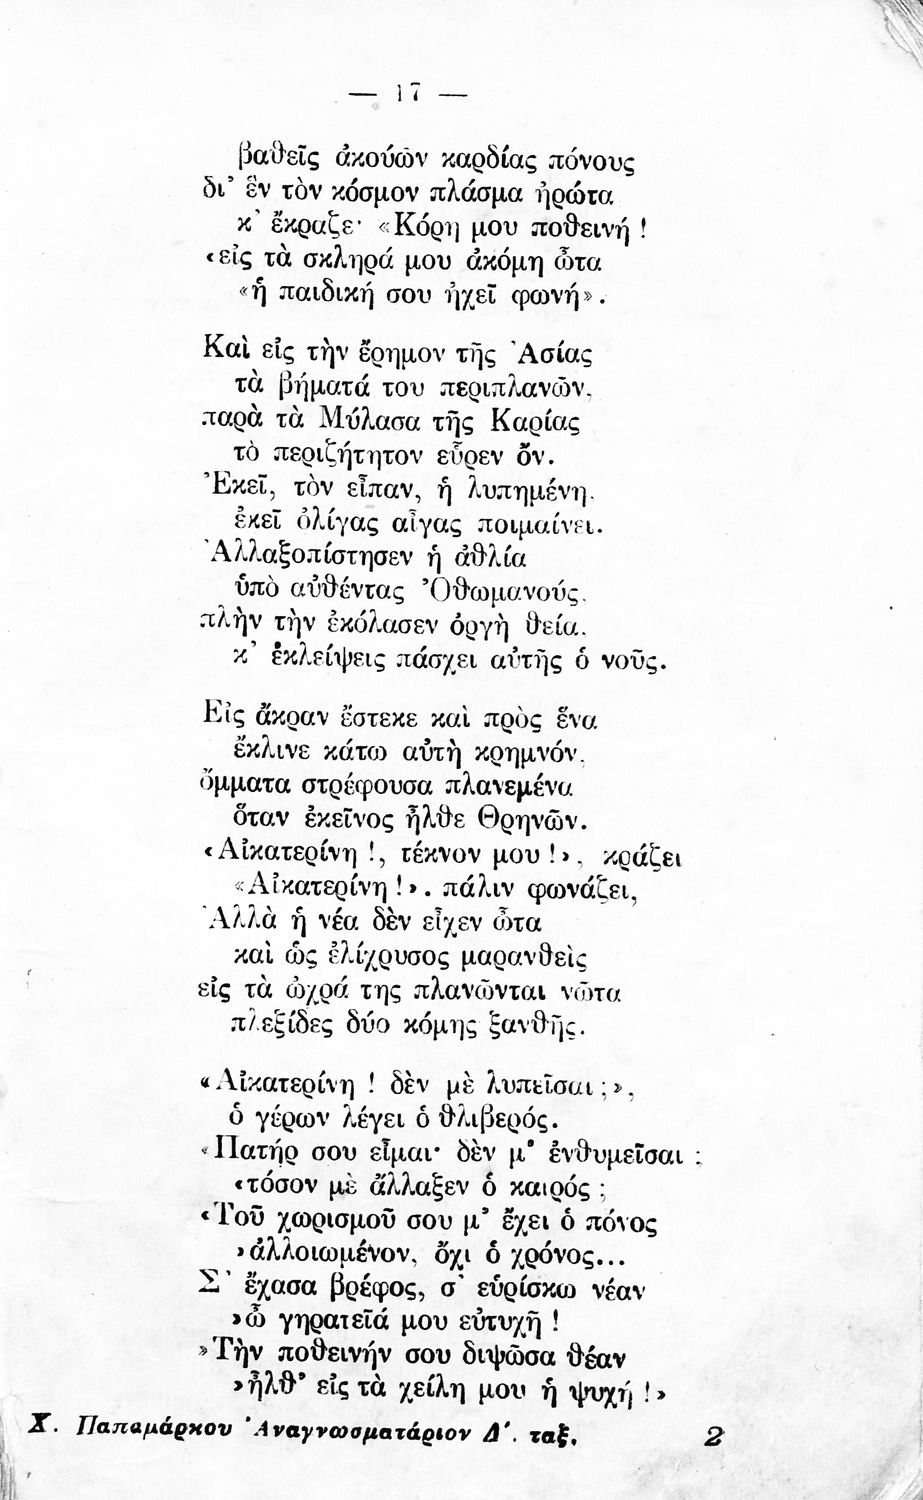 — 17 —
βαθεῖς ἀκούων καρδίας πόνους
δι’ ἓν τὸν κόσμον πλάσμα ἠρώτα
κ’ ἔκραζε· «Κόρη μου ποθεινή !
«εἰς τὰ σκληρά μου ἀκόμη ὦτα
«ἡ παιδική σου ἠχεῖ φωνή».
Καὶ εἰς τὴν ἔρημον τῆς Ἀσίας
τὰ βήματά του περιπλανῶν,
παρὰ τὰ Μύλασα τῆς Καρίας
τὸ περιζήτητον εὗρεν ὄν.
Ἐκεῖ, τὸν εἶπαν, ἡ λυπημένη,
ἐκεῖ ὀλίγας αἶγας ποιμαίνει.
Ἀλλαξοπίστησεν ἡ ἀθλία
ὑπὸ αὐθέντας Ὀθωμανούς,
πλὴν τὴν ἐκόλασεν ὀργὴ θεία,
κ’ ἐκλείψεις πάσχει αὐτῆς ὁ νοῦς.
Εἰς ἄκραν ἔστεκε καὶ πρὸς ἕνα
ἔκλινε κάτω αὐτὴ κρημνόν,
ὄμματα στρέφουσα πλανεμένα
ὅταν ἐκεῖνος ἦλθε Θρηνῶν.
«Αἰκατερίνη !, τέκνον μου !», κράζει
«Αἰκατερίνη !». πάλιν φωνάζει,
Ἀλλὰ ἡ νέα δὲν εἶχεν ὦτα
καὶ ὡς ἐλίχρυσος μαρανθεὶς
εἰς τὰ ὠχρά της πλανῶνται νῶτα
πλεξίδες δύο κόμης ξανθῆς.
«Αἰκατερίνη ! δὲν μὲ λυπεῖσαι ;»,
ὁ γέρων λέγει ὁ θλιβερός.
«Πατήρ σου εἶμαι· δὲν μ’ ἐνθυμεῖσαι ;
«τόσον μὲ ἄλλαξεν ὁ καιρός ;
«Τοῦ χωρισμοῦ σου μ’ ἔχει ὁ πόνος
»ἀλλοιωμένον, ὄχι ὁ χρόνος...
Σ’ ἔχασα βρέφος, σ’ εὑρίσκω νέαν
»ὦ γηρατεῖά μου εὐτυχῆ !
»Τὴν ποθεινήν σου διψῶσα θέαν
»ἦλθ’ εἰς τὰ χείλη μου ἡ ψυχή !»
Χ. Παπαμάρκου Ἀναγνωσματάριον Δ΄. ταξ. 2